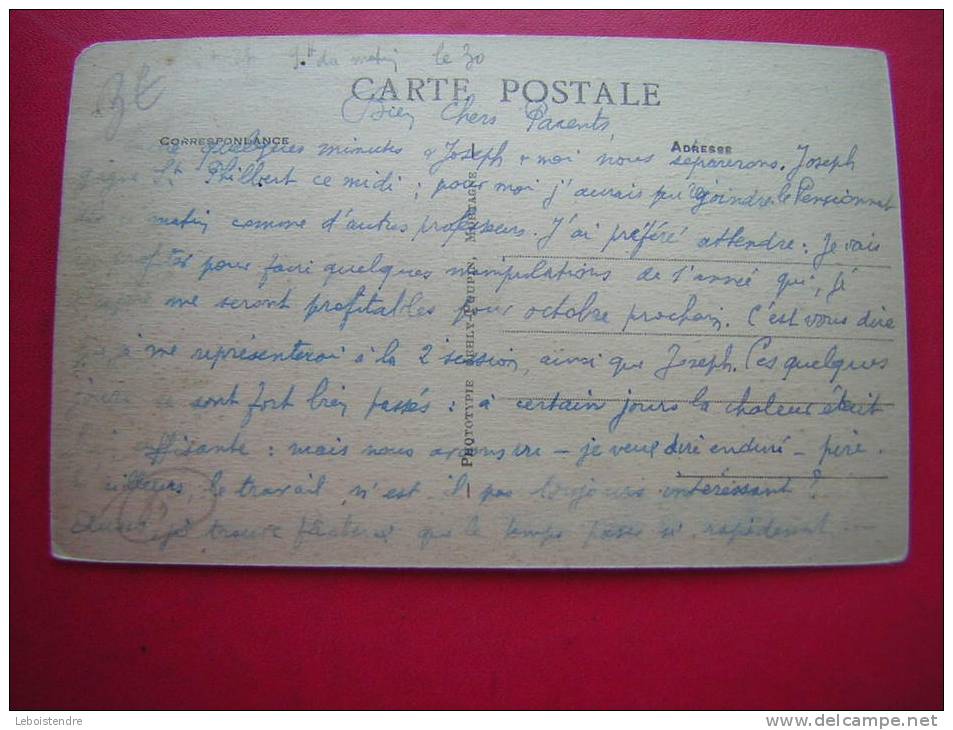 9 H du matin le 30
CARTE POSTALE
Bien Chers Parents,
CORRESPONDANCE
ADRESSE
quelques minutes & Joseph & moi nous séparerons. Joseph
gagne St Philbert ce midi ; pour moi j'aurais pu rejoindre le Pensionnat
matin comme d'autres professeurs. J'ai préféré attendre : Je vais
pour faire quelques manipulations de l'année qui, je
me seront profitables pour octobre prochain. C'est vous dire
me représenterai à la 2e session, ainsi que Joseph. Ces quelques
jours se sont fort bien passés : à certains jours la chaleur était
suffisante : mais nous avons vu – je veux dire enduré – pire.
ailleurs, le travail n'est-il pas toujours intéressant ?
je trouve que le temps passe si rapidement ...
PHOTOTYPIE POUPIN, MORTAGNE
32
Leboistendre
www.delcampe.net